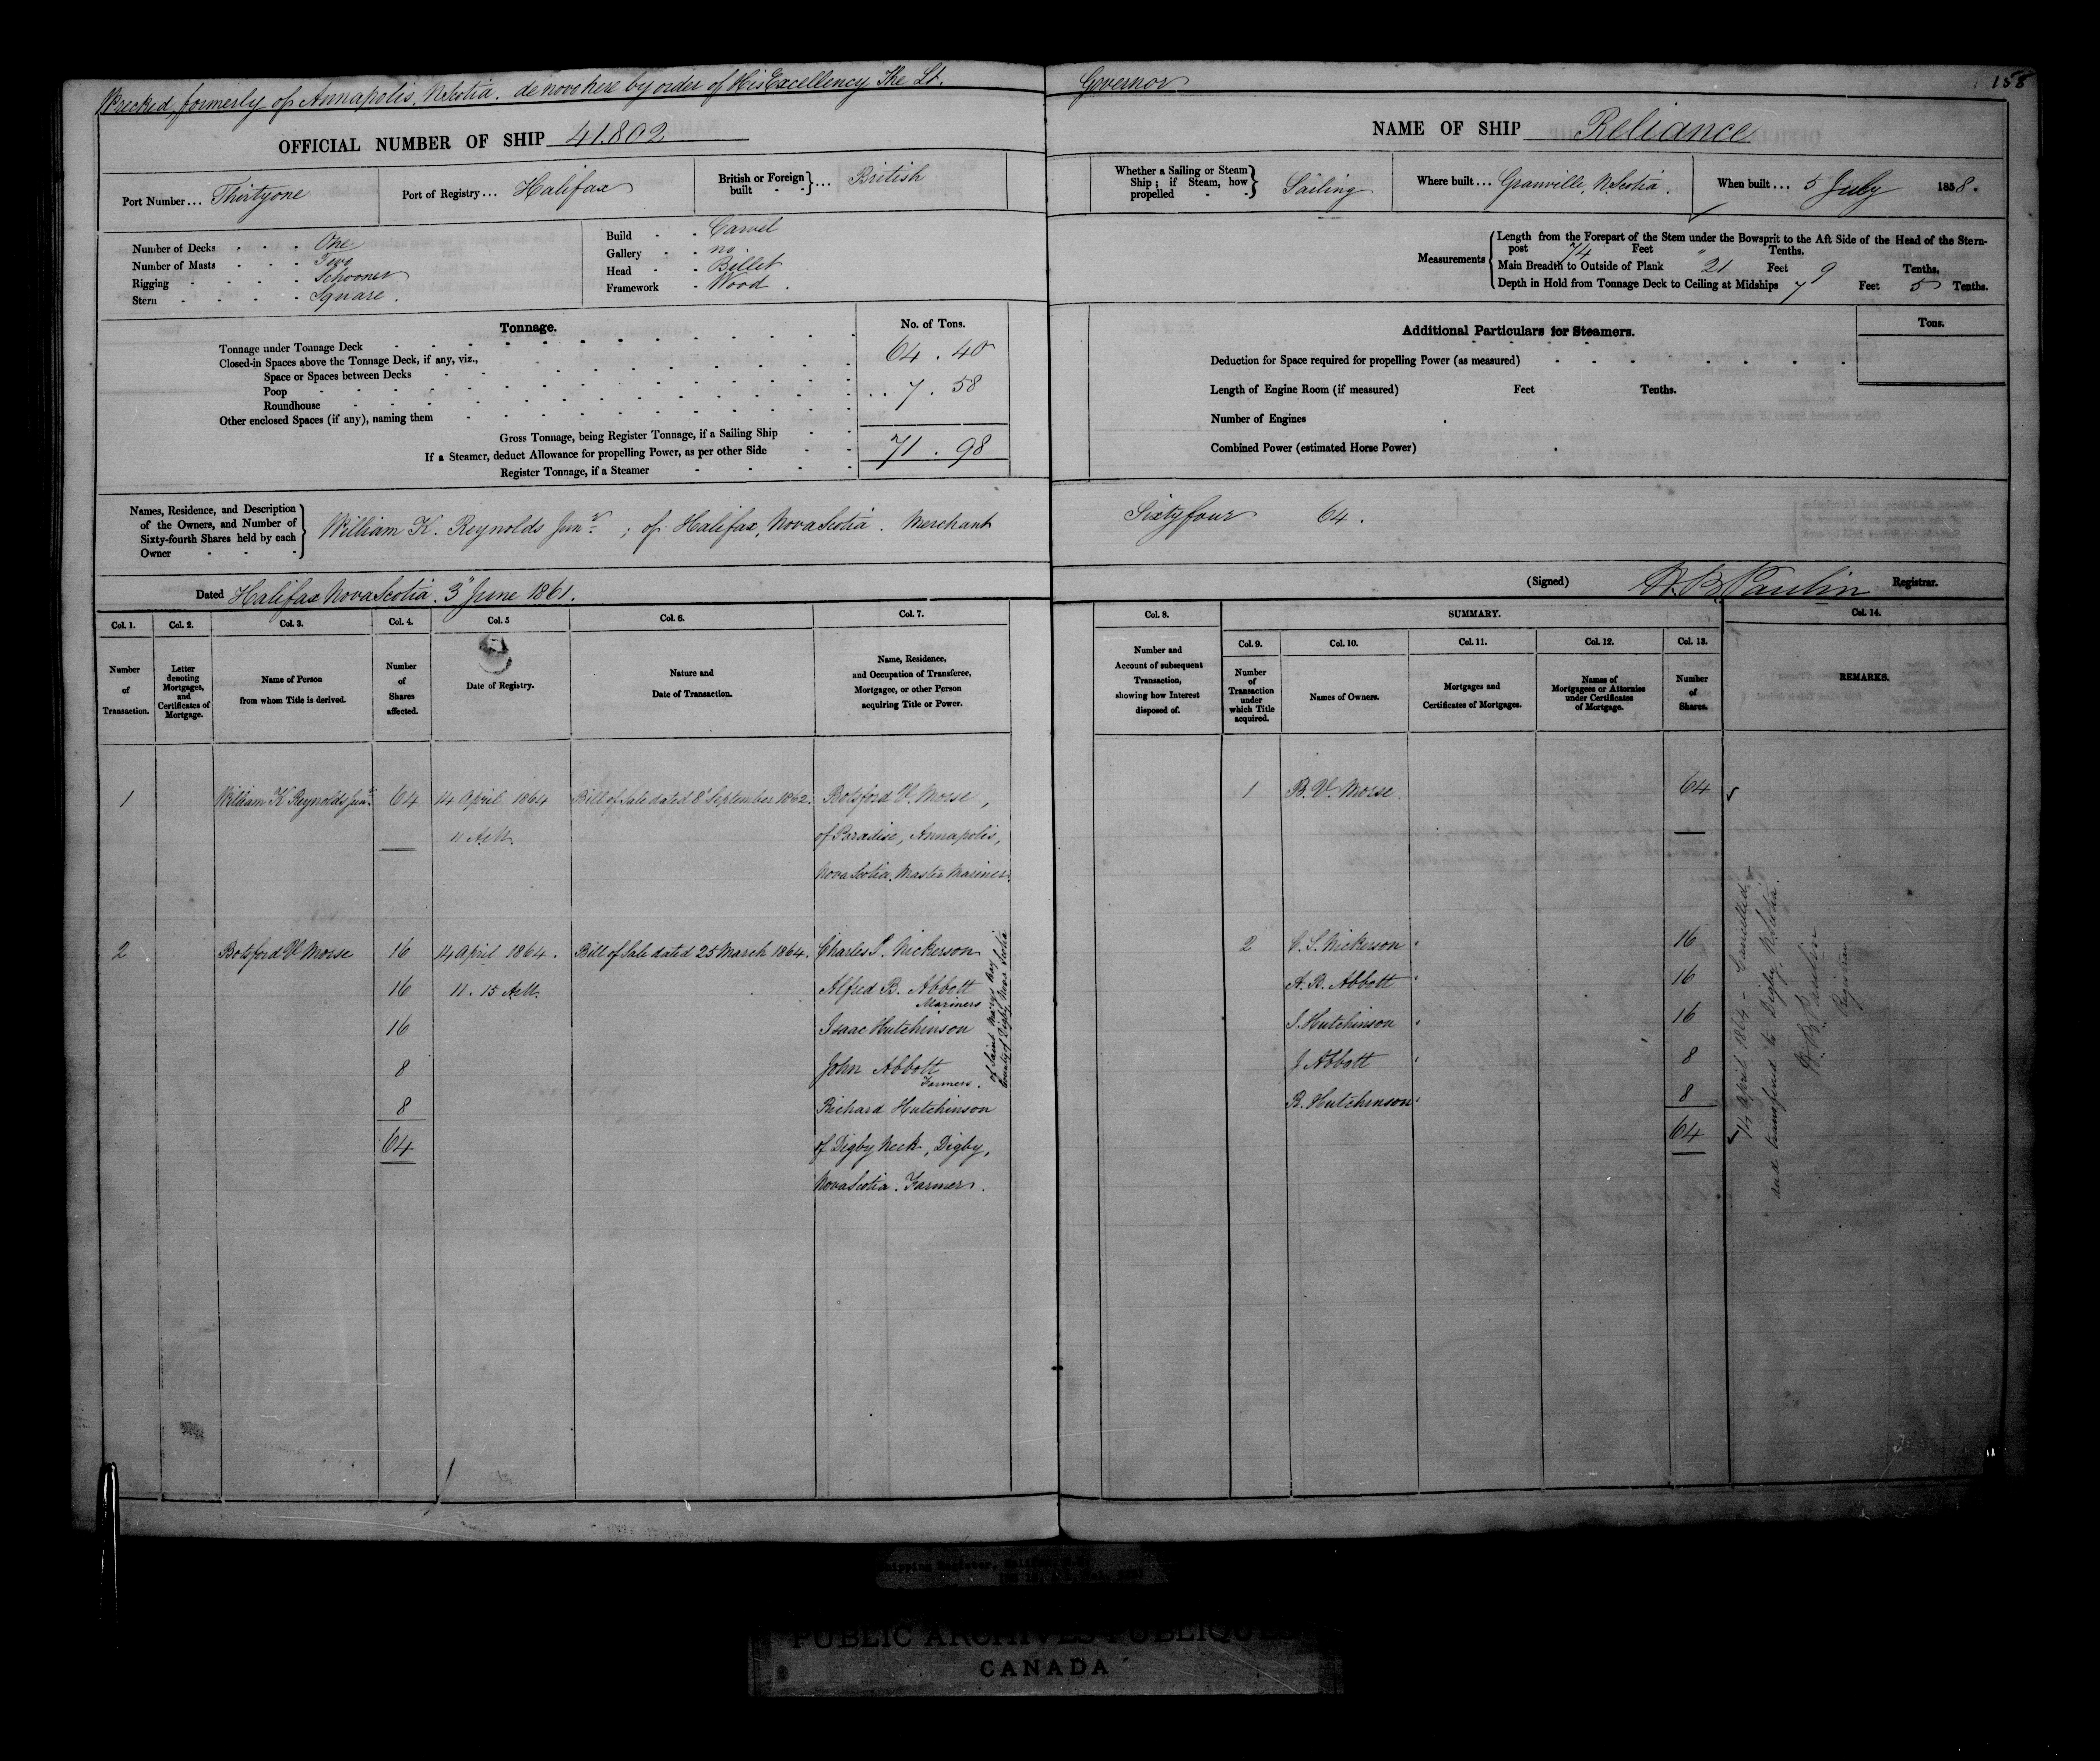 Wrecked, formerly of Annapolis, N.Scotia. de novo here by order of His Excellency The Lt. Governor
158
OFFICIAL NUMBER OF SHIP 41.802
NAME OF SHIP Reliance
Port Number ... Thirtyone
Port of Registry ... Halifax
British or Foreign built - - } ... British
Whether a Sailing or Steam Ship; if Steam, how propelled - - } Sailing
Where built ... Granville, N.Scotia.
When built ... 5 July 1858.
Number of Decks - - - One
Number of Masts - - - Two
Rigging - - - - Schooner
Stern - - - - Square.
Build - - Carvel
Gallery - - no.
Head - - Billet
Framework - Wood.
Measurements
Length from the Forepart of the Stem under the Bowsprit to the Aft Side of the Head of the Stern-
post 74 Feet " Tenths.
Main Breadth to Outside of Plank 21 Feet 9 Tenths.
Depth in Hold from Tonnage Deck to Ceiling at Midships 7 Feet 5 Tenths.
Tonnage.
No. of Tons.
Tonnage under Tonnage Deck 64.40
Closed-in Spaces above the Tonnage Deck, if any, viz.,
Space or Spaces between Decks
Poop 7.58
Roundhouse
Other enclosed Spaces (if any), naming them
Gross Tonnage, being Register Tonnage, if a Sailing Ship 71.98
If a Steamer, deduct Allowance for propelling Power, as per other Side
Register Tonnage, if a Steamer
Additional Particulars for Steamers.
Tons.
Deduction for Space required for propelling Power (as measured)
Length of Engine Room (if measured) Feet Tenths.
Number of Engines
Combined Power (estimated Horse Power)
Names, Residence, and Description
of the Owners, and Number of
Sixty-fourth Shares held by each
Owner
William K. Reynolds Junr; of Halifax, Nova Scotia. Merchant Sixty four 64.
Dated Halifax Nova Scotia. 3" June 1861.
(Signed) H. B. Paulin Registrar.
Col. 1. Col. 2. Col. 3. Col. 4. Col. 5 Col. 6. Col. 7.
Col. 8. SUMMARY. Col. 14.
Col. 9. Col. 10. Col. 11. Col. 12. Col. 13.
Number of Transaction.
Letter denoting Mortgages, and Certificates of Mortgage.
Name of Person from whom Title is derived.
Number of Shares affected.
Date of Registry.
Nature and Date of Transaction.
Name, Residence, and Occupation of Transferee, Mortgagee, or other Person acquiring Title or Power.
Number and Account of subsequent Transaction, showing how Interest disposed of.
Number of Transaction under which Title acquired.
Names of Owners.
Mortgages and Certificates of Mortgages.
Names of Mortgagees or Attornies under Certificates of Mortgage.
Number of Shares.
REMARKS.
1 William K Reynolds Junr. 64 14 April 1864 Bill of Sale dated 8' September 1862. Botsford V. Morse,
11 A.M. of Paradise, Annapolis,
Nova Scotia. Master Mariner.
1 B. V. Morse 64
2 Botsford V Morse 16 14 April 1864. Bill of Sale dated 25 March 1864. Charles S. Nickerson
16 11.15 A.M. Alfred B. Abbott
Mariners
16 Isaac Hutchinson
8 John Abbott
Farmers.
8 Richard Hutchinson
64 of Digby Neck, Digby,
Nova Scotia. Farmer.
of Saint Marys Bay
County of Digby Nova Scotia
2 C. S. Nickerson 16
A. B. Abbott 16
I. Hutchinson 16
J Abbott 8
R. Hutchinson 8
64
14 April 1864 - Cancelled
and transferred to Digby, N.Scotia.
H. B. Paulin
Registrar
Shipping Register, Halifax
PUBLIC ARCHIVES PUBLIQUES
CANADA